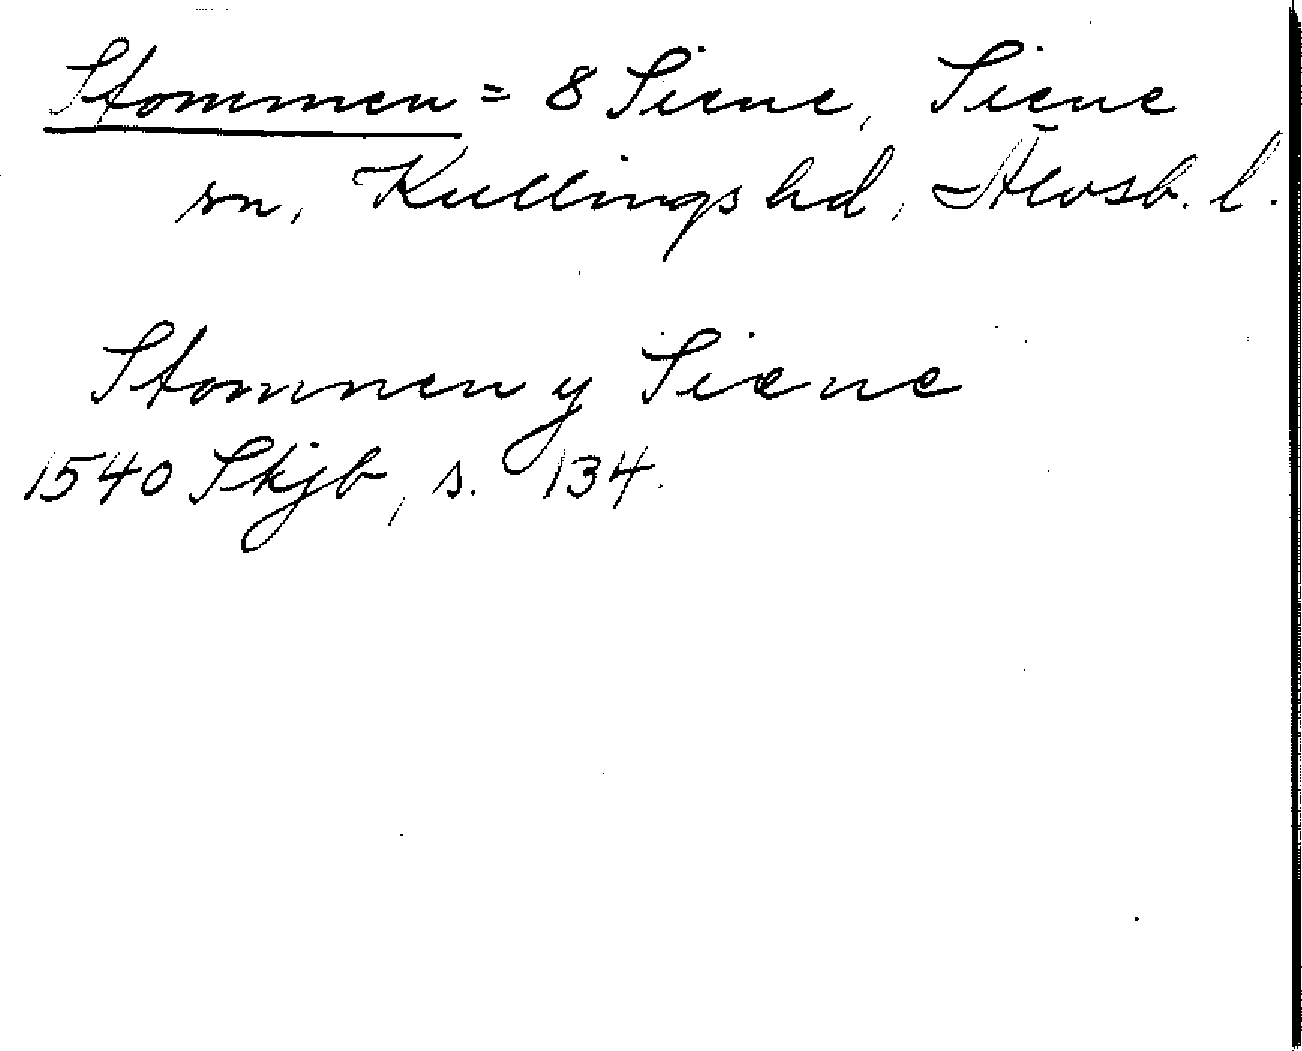 Stommen = 8 Siene, Siene
sn, Kullings hd, Älvsb. l.
Stommen y Siene
1540 Skjb, s. 134.